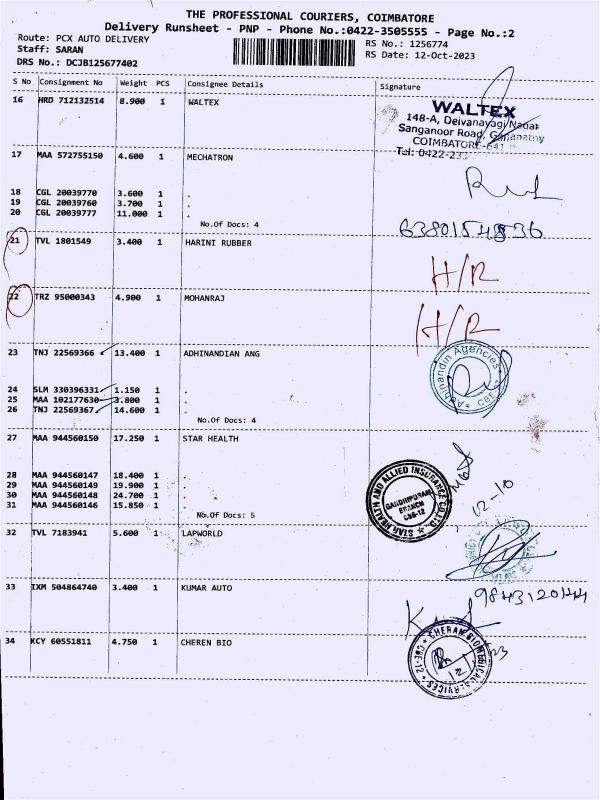 THE PROFESSIONAL COURIERS, COIMBATORE
Delivery Runsheet - PNP - Phone No.:0422-3505555 - Page No.:2
Route: PCX AUTO DELIVERY RS No.: 1256774
Staff: SARAN RS Date: 12-Oct-2023
DRS No.: DCJB125677402
S No Consignment No Weight PCS Consignee Details Signature
16 HRD 712132514 8.900 1 WALTEX
WALTEX
148-A, Deivanayagi Nadar
Sanganoor Road, Ganapathy
COIMBATORE-641
Tel: 0422-233
17 MAA 572755150 4.600 1 MECHATRON
18 CGL 20039770 3.600 1 .
19 CGL 20039760 3.700 1 .
20 CGL 20039777 11.000 1 .
No.Of Docs: 4
21 TVL 1801549 3.400 1 HARINI RUBBER
H/R
22 TRZ 95000343 4.900 1 MOHANRAJ
H/R
23 TNJ 22569366 13.400 1 ADHINANDIAN ANG
Adhinandin Agencies
CBE
24 SLM 330396331 1.150 1 .
25 MAA 102177630 3.800 1 .
26 TNJ 22569367 14.600 1 .
No.Of Docs: 4
27 MAA 944560150 17.250 1 STAR HEALTH
28 MAA 944560147 18.400 1 .
29 MAA 944560149 19.900 1 .
30 MAA 944560148 24.700 1 .
31 MAA 944560146 15.850 1 .
No.Of Docs: 5
STAR HEALTH AND ALLIED INSURANCE CO.LTD.
GANDHIPURAM
BRANCH
CBE-12
12-10
32 TVL 7183941 5.600 1 LAPWORLD
33 IXM 504864740 3.400 1 KUMAR AUTO
9843120144
34 KCY 60551811 4.750 1 CHEREN BIO
CHERAN BIOMEDICAL SERVICES
CBE-12